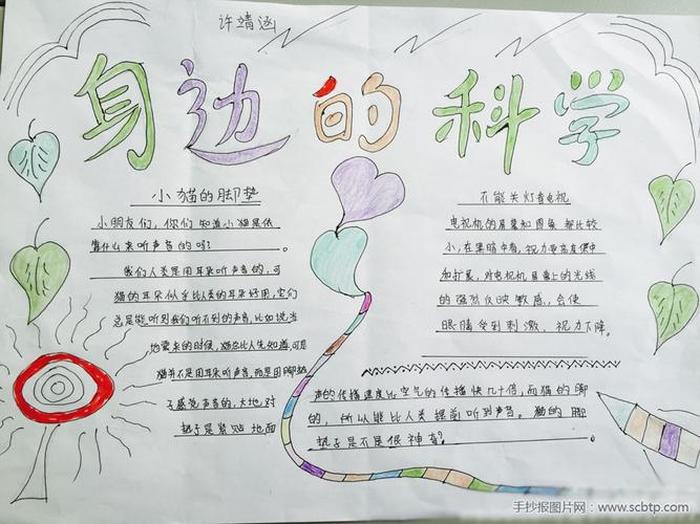 许靖涵
身边的科学
小猫的脚垫
小朋友们,你们知道小猫是依
靠什么来听声音的吗?
我们人类是用耳朵听声音的,可
猫的耳朵似乎比人类的耳朵好用,它们
总是能听到我们听不到的声音,比如说当
地震来的时候,猫总比人先知道,可是
猫并不是用耳朵听声音,而是用脚垫
子感觉声音的,大地对
垫子是紧贴地面
声的传播速度比空气的传播快几十倍,而猫的脚
的,所以能比人类提前听到声音。猫的脚
垫子是不是很神奇?
不能关灯看电视
电视机的屏幕和图象都比较
小,在黑暗中看,视力要高度集中
和扩展,对电视机屏幕上的光线
的强烈反映敏感,会使
眼睛受到刺激,视力下降。
手抄报图片网:www.scbtp.com